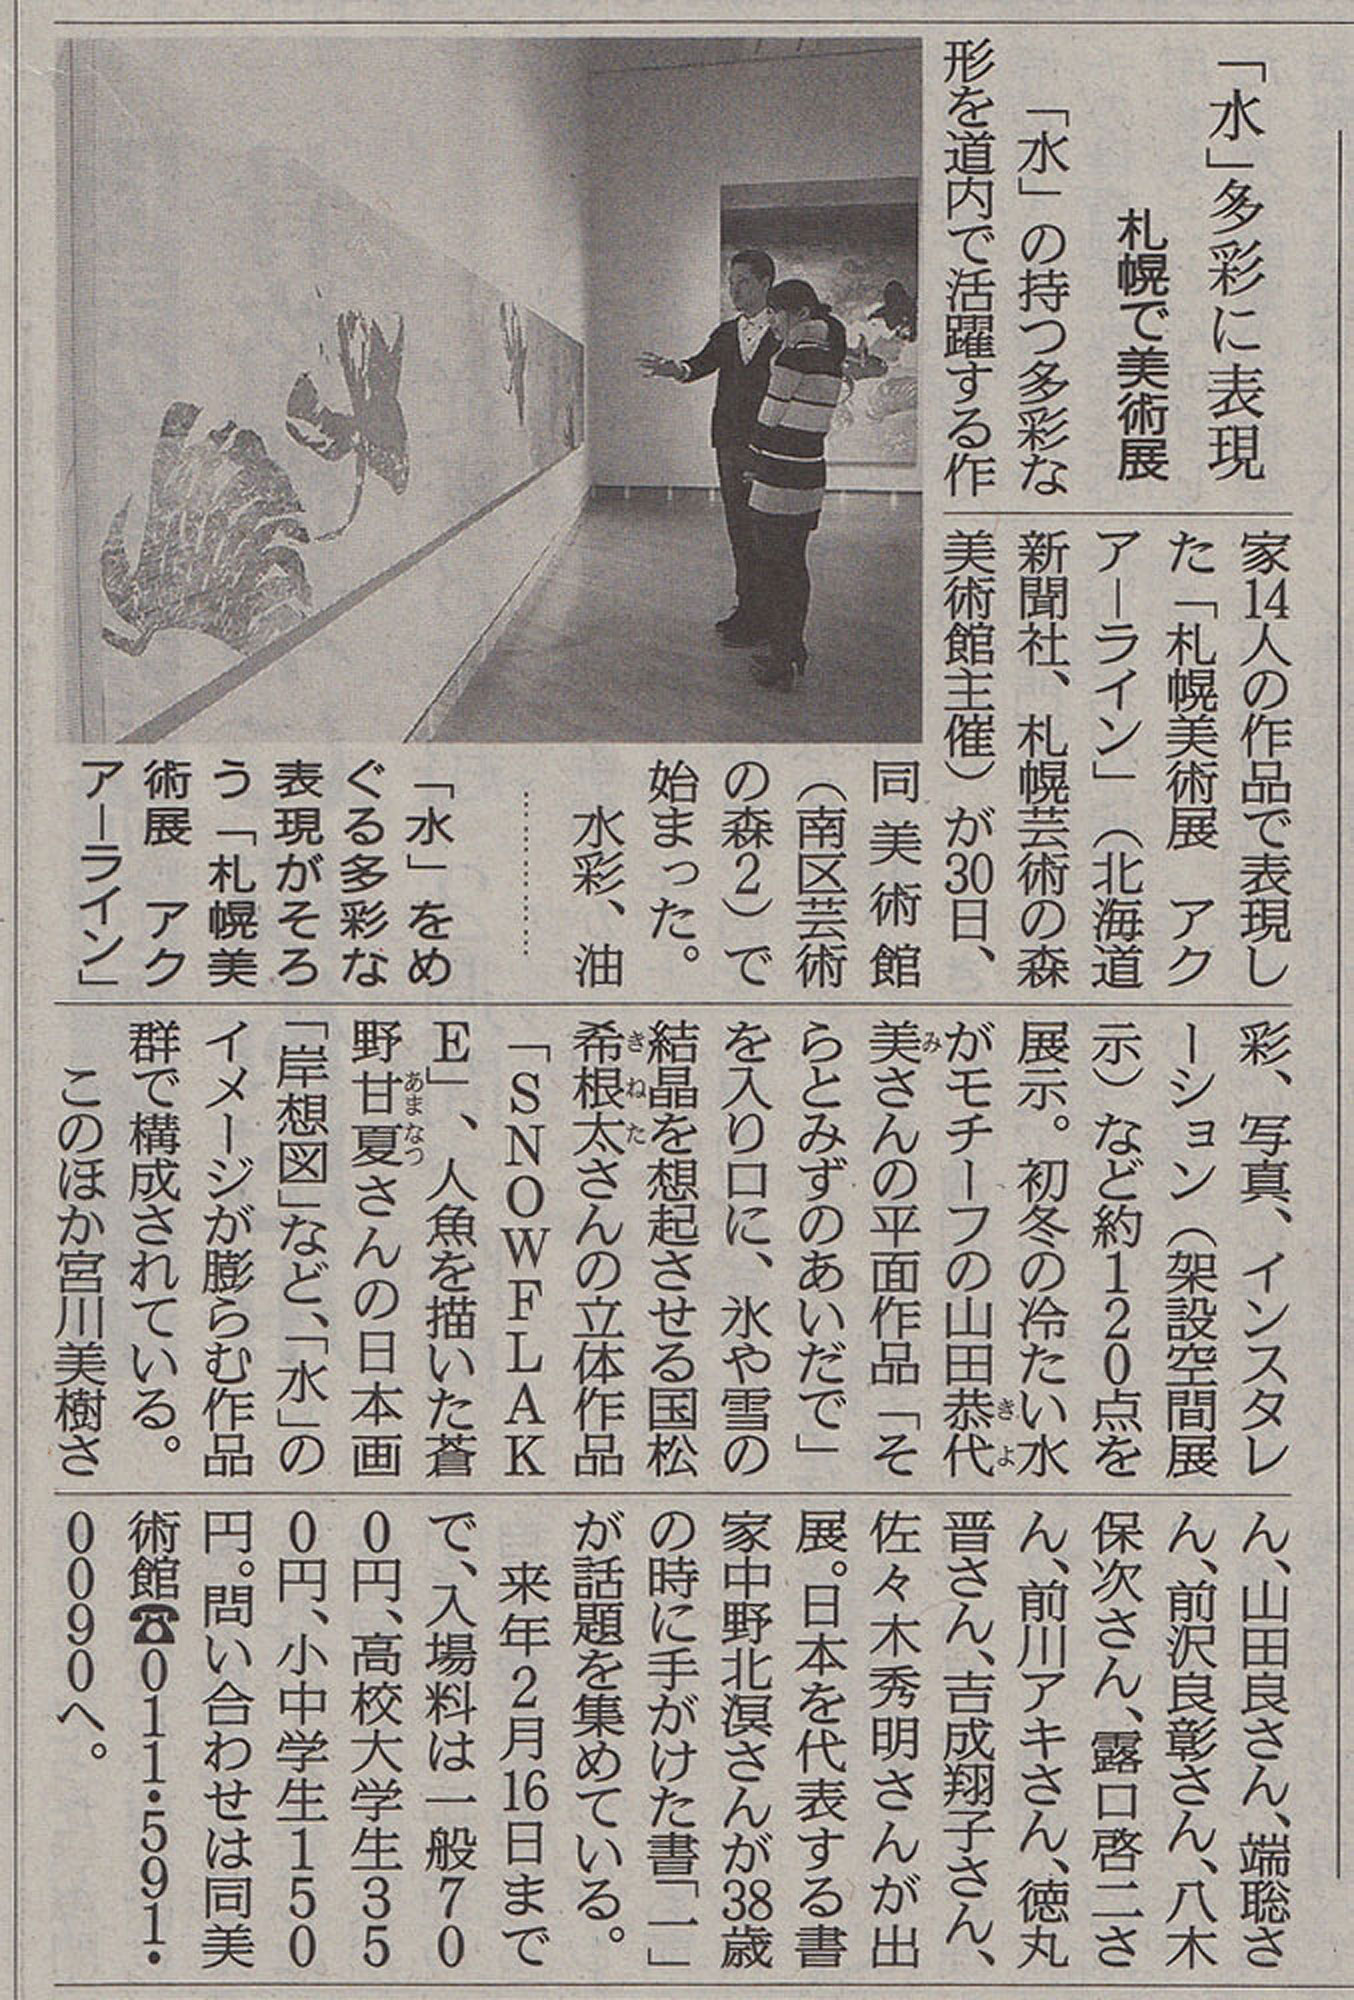 「水」多彩に表現
札幌で美術展
「水」の持つ多彩な
形を道内で活躍する作
家14人の作品で表現し
た「札幌美術展　アク
アーライン」（北海道
新聞社、札幌芸術の森
美術館主催）が30日、
同美術館
（南区芸術
の森2）で
始まった。
水彩、油
彩、写真、インスタレ
ーション（架設空間展
示）など約120点を
展示。初冬の冷たい水
がモチーフの山田恭代
美さんの平面作品「そ
らとみずのあいだで」
を入り口に、氷や雪の
結晶を想起させる国松
希根太さんの立体作品
「SNOWFLAK
E」、人魚を描いた蒼
野甘夏さんの日本画
「岸想図」など、「水」の
イメージが膨らむ作品
群で構成されている。
このほか宮川美樹さ
ん、山田良さん、端聡さ
ん、前沢良彰さん、八木
保次さん、露口啓二さ
ん、前川アキさん、徳丸
晋さん、吉成翔子さん、
佐々木秀明さんが出
展。日本を代表する書
家中野北溟さんが38歳
の時に手がけた書「一」
が話題を集めている。
来年2月16日まで
で、入場料は一般70
0円、高校大学生35
0円、小中学生150
円。問い合わせは同美
術館☎011・591・
0090へ。
「水」をめ
ぐる多彩な
表現がそろ
う「札幌美
術展　アク
アーライン」